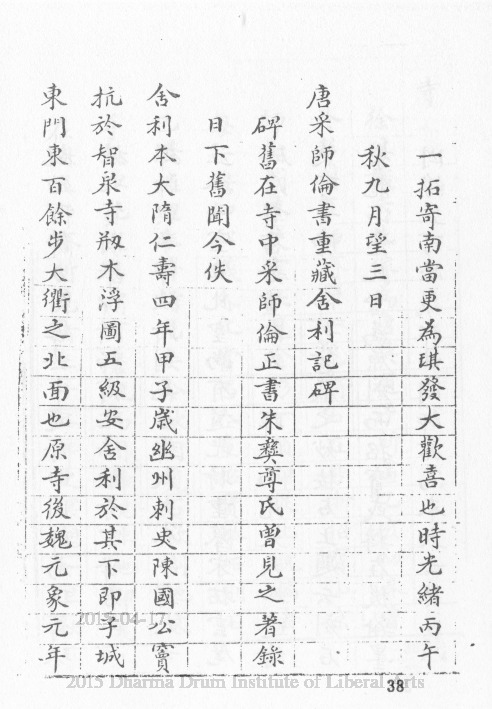 一拓寄南當更為琪發大歡喜也時光緒丙午
秋九月望三日
唐采師倫書重藏舍利記碑
碑舊在寺中采師倫正書朱彞尊氏曾見之著錄
日下舊聞今佚
舍利本大隋仁壽四年甲子歲幽州刺史陳國公竇
抗於智泉寺剏木浮圖五級安舍利於其下即子城
東門東百餘步大衢之北面也原寺後魏元象元年
2015-04-17
2015 Dharma Drum Institute of Liberal Arts
38